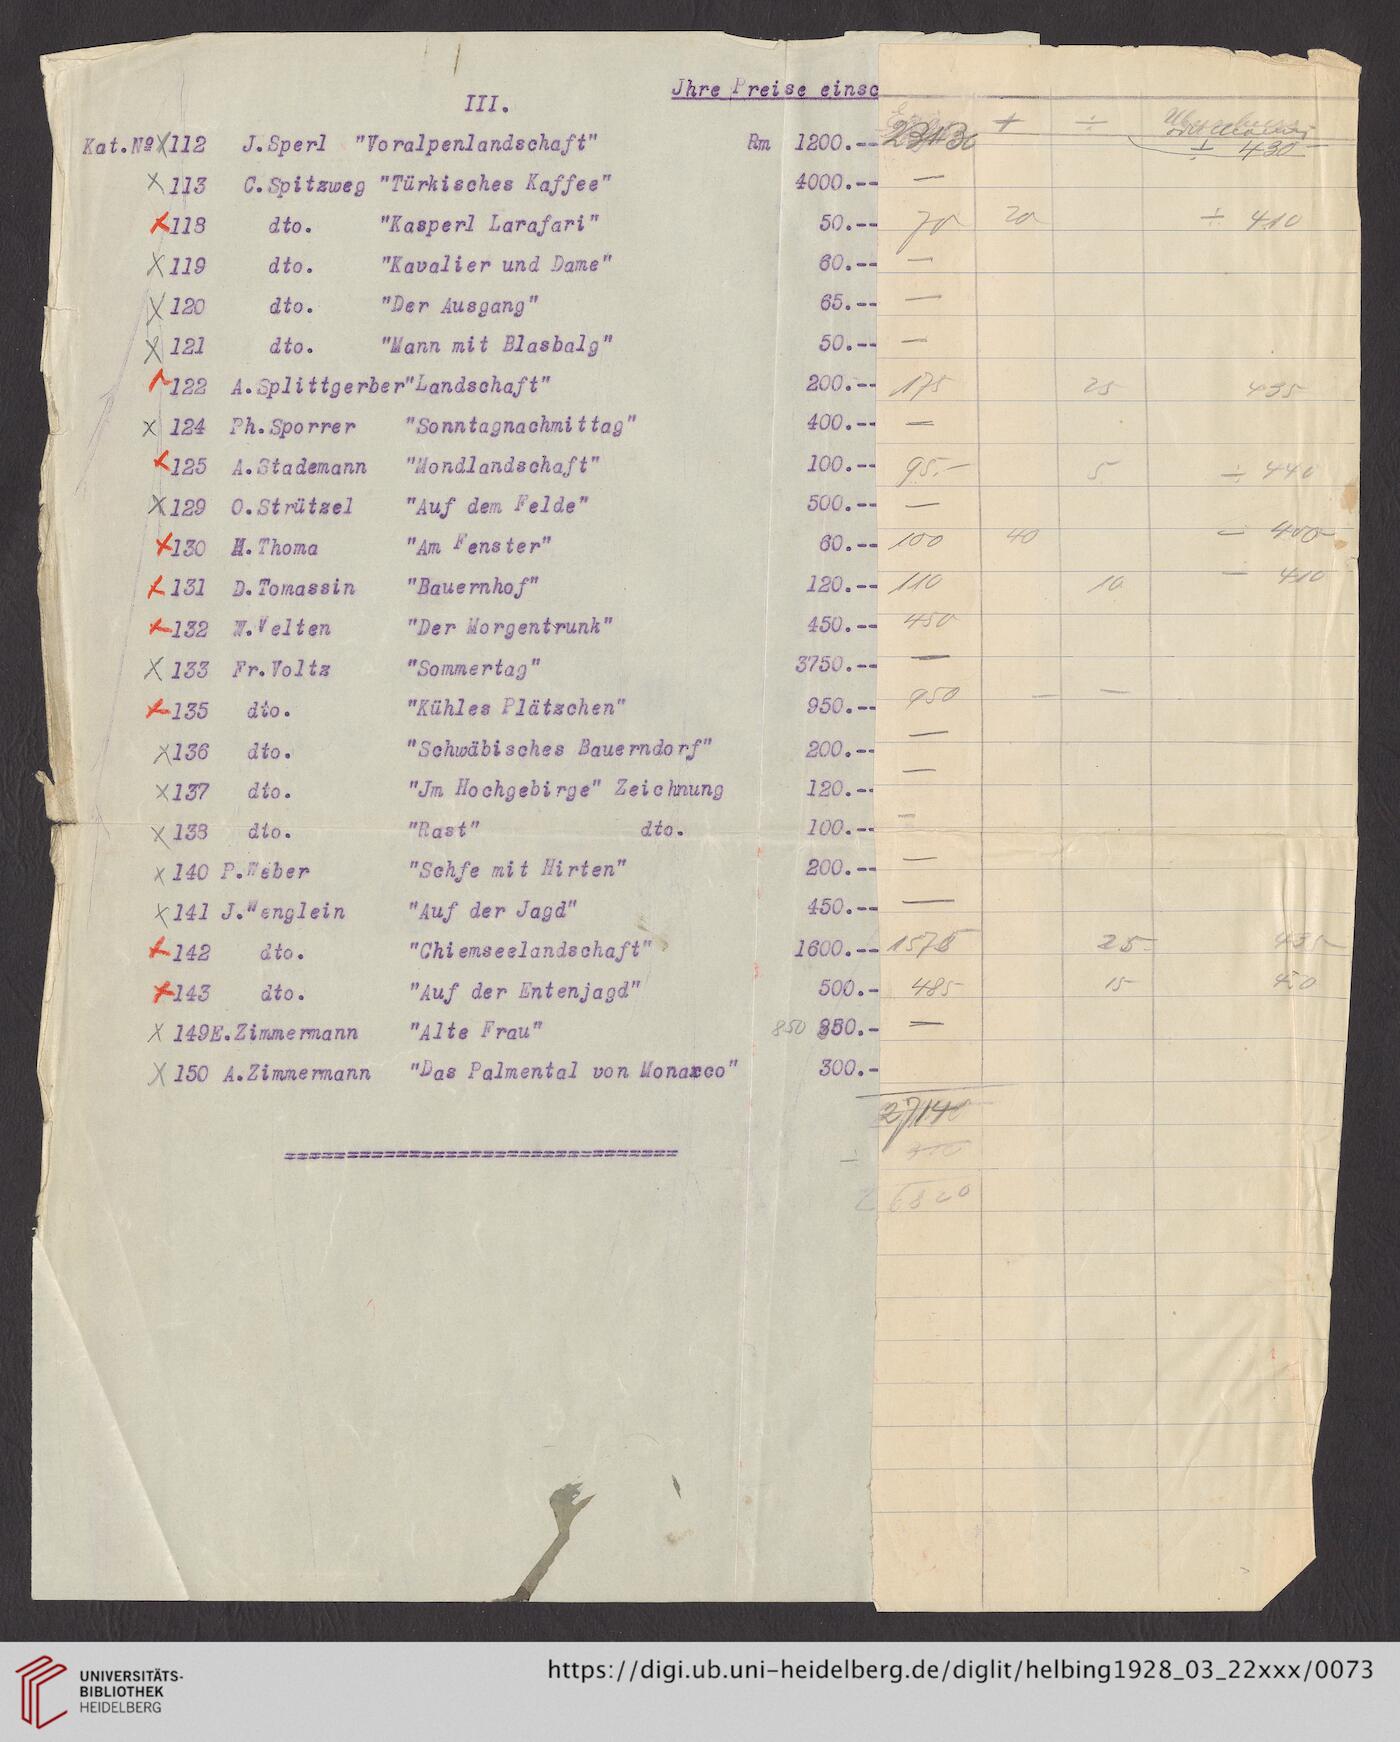 Jhre Preise einsc
III.
+ ÷
Kat.Nº X 112 J.Sperl "Voralpenlandschaft" Rm 1200.-- ÷ 430
X 113 C.Spitzweg "Türkisches Kaffee" 4000.-- —
X 118 dto. "Kasperl Larafari" 50.-- 70 20 ÷ 410
X 119 dto. "Kavalier und Dame" 60.-- —
X 120 dto. "Der Ausgang" 65.-- —
X 121 dto. "Mann mit Blasbalg" 50.-- —
122 A.Splittgerber "Landschaft" 200.-- 175 25 435
X 124 Ph.Sporrer "Sonntagnachmittag" 400.-- —
X 125 A.Stademann "Mondlandschaft" 100.-- 95.- 5 ÷ 440
X 129 O.Strützel "Auf dem Felde" 500.-- —
X 130 H.Thoma "Am Fenster" 60.-- 100 40 — 400
X 131 D.Tomassin "Bauernhof" 120.-- 110 10 — 410
X 132 W.Velten "Der Morgentrunk" 450.-- 450
X 133 Fr.Voltz "Sommertag" 3750.-- —
X 135 dto. "Kühles Plätzchen" 950.-- 950 — —
X 136 dto. "Schwäbisches Bauerndorf" 200.-- —
X 137 dto. "Jm Hochgebirge" Zeichnung 120.-- —
X 138 dto. "Rast" dto. 100.-- —
X 140 P.Weber "Schfe mit Hirten" 200.-- —
X 141 J.Wenglein "Auf der Jagd" 450.-- —
X 142 dto. "Chiemseelandschaft" 1600.-- 1575 25 435
X 143 dto. "Auf der Entenjagd" 500.- 485 15 450
X 149 E.Zimmermann "Alte Frau" 850 850.- —
X 150 A.Zimmermann "Das Palmental von Monacco" 300.-
27140
================================
÷
26820
UNIVERSITÄTS-
BIBLIOTHEK
HEIDELBERG
https://digi.ub.uni-heidelberg.de/diglit/helbing1928_03_22xxx/0073